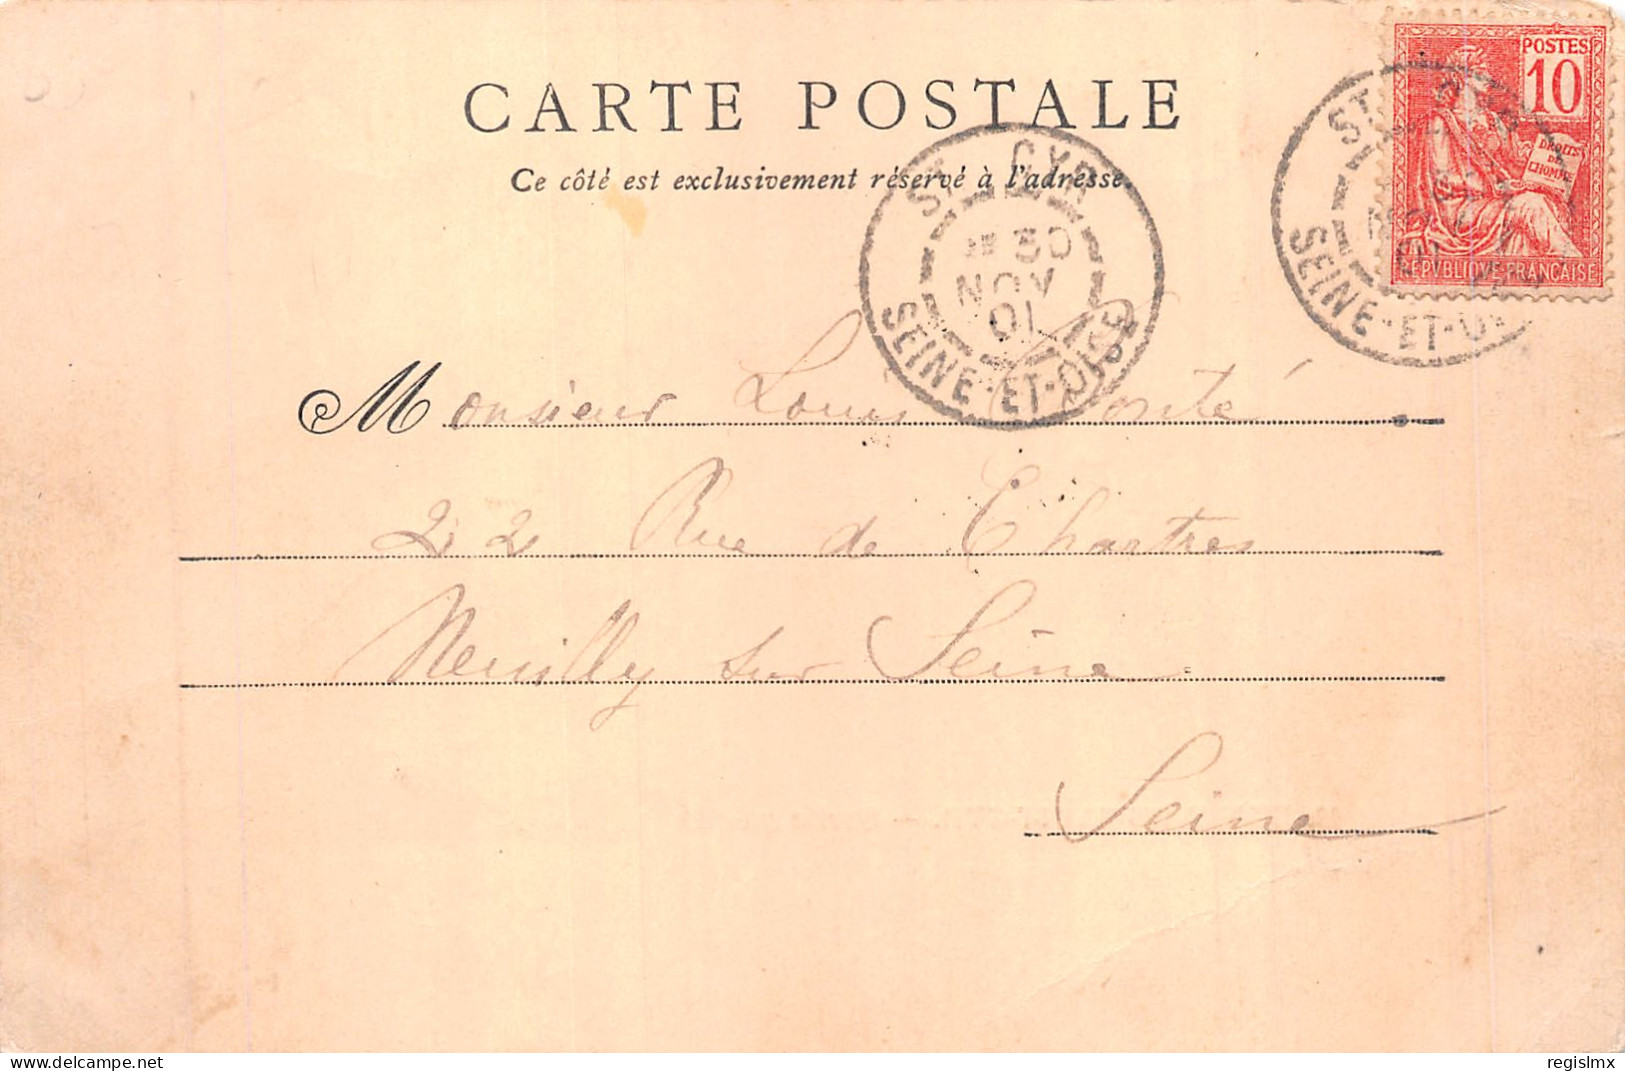 CARTE POSTALE
Ce côté est exclusivement réservé à l'adresse.
POSTES
10
DROITS
DE
L'HOMME
REPVBLIQUE FRANCAISE
ST CYR
30
NOV
01
SEINE-ET-OISE
ST CYR
NOV
01
SEINE-ET-OISE
Monsieur Louis
22 Rue de Chartres
Neuilly sur Seine
Seine
regislmx
delcampe.net